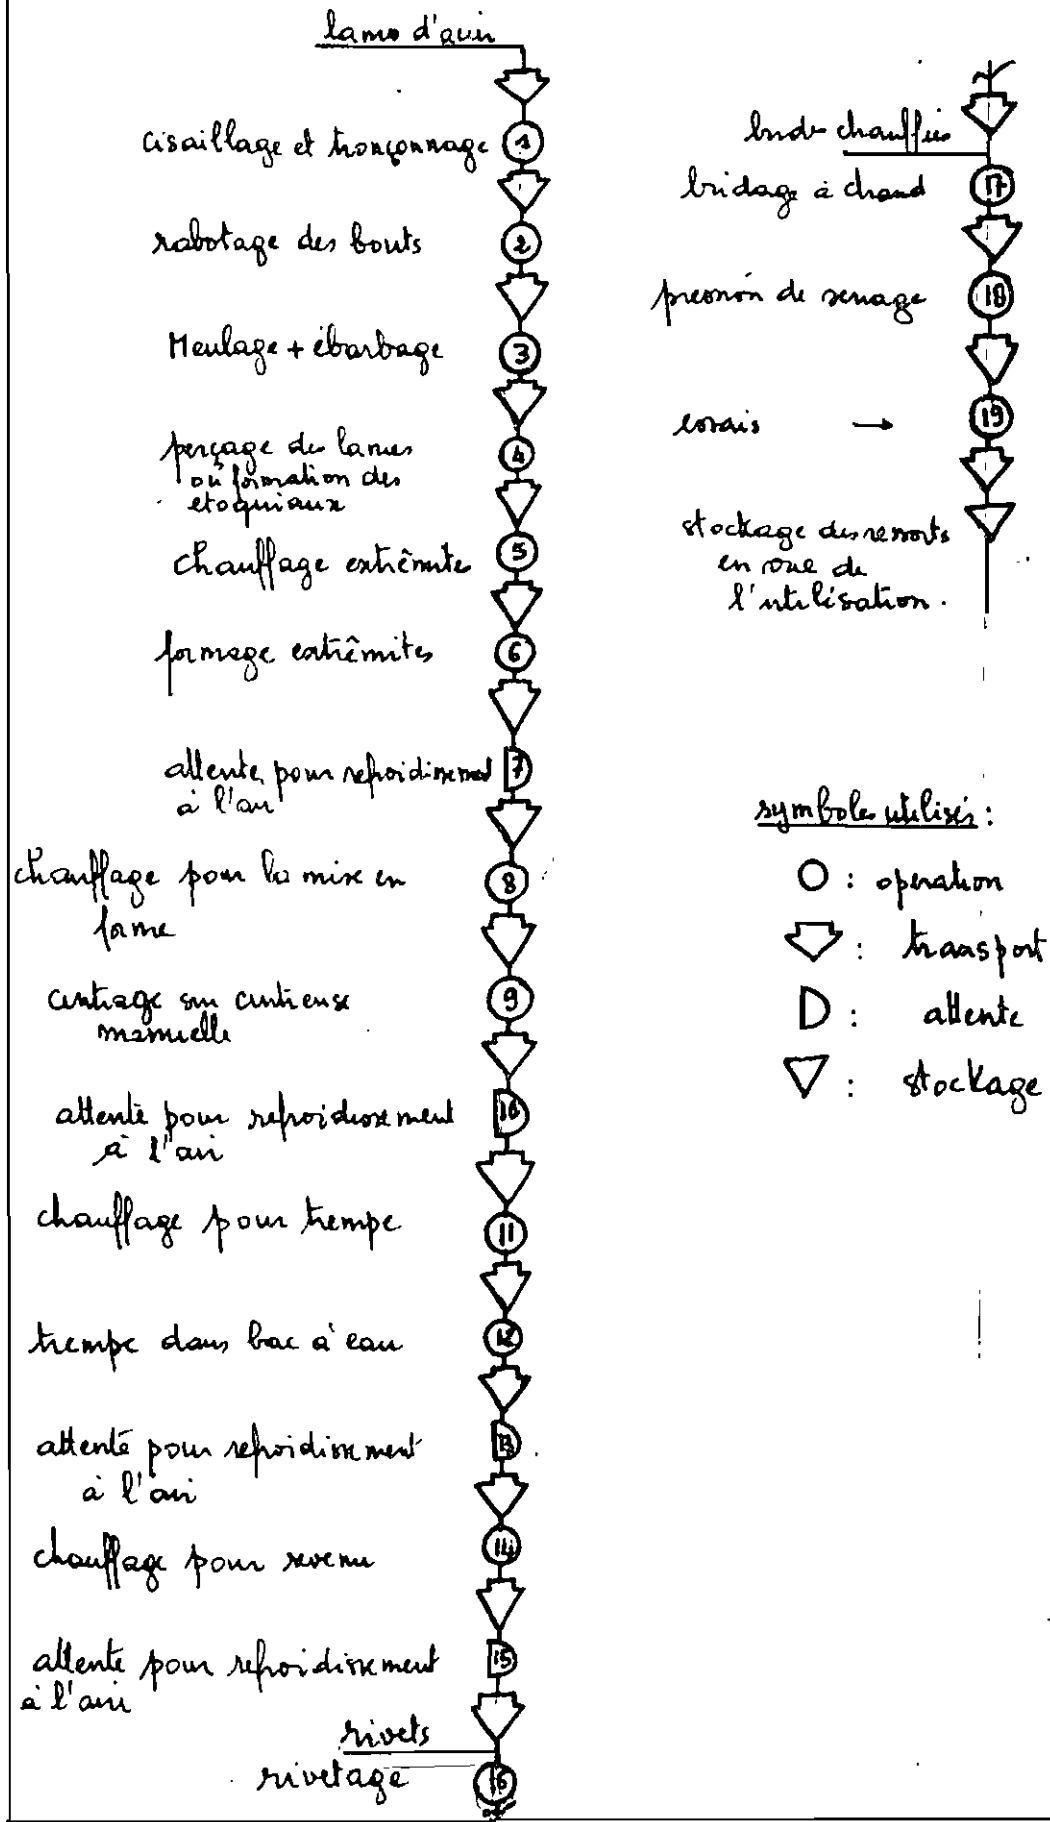 lame d'acier
1
cisaillage et tronçonnage
2
rabotage des bouts
3
Meulage + ébarbage
4
perçage des lames
ou formation des
etoquiaux
5
chauffage extrêmites
6
formage extrêmites
7
attente pour refroidissement
à l'air
8
chauffage pour la mise en
forme
9
cintrage sur cintreuse
manuelle
10
attente pour refroidissement
à l'air
11
chauffage pour trempe
12
trempe dans bac à eau
13
attente pour refroidissement
à l'air
14
chauffage pour revenu
15
attente pour refroidissement
à l'air
rivets
16
rivetage
bride chauffées
17
bridage à chaud
18
pression de serrage
19
essais →
stockage des ressorts
en vue de
l'utilisation.
symboles utilisés :
: operation
: transport
: attente
: stockage